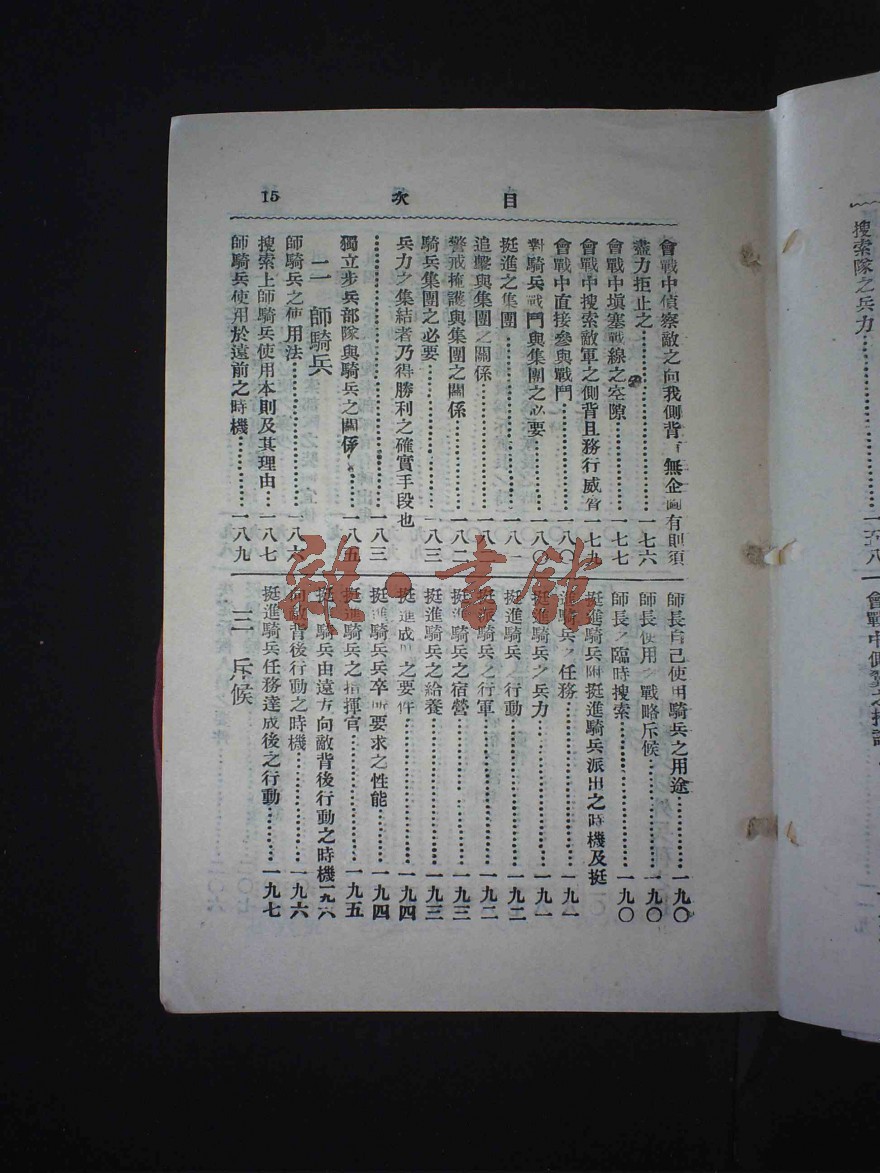 目次
15
會戰中偵察敵之向我側背有無企圖有則須
盡力拒止之……一七六
會戰中塡塞戰線之空隙……一七七
會戰中搜索敵軍之側背且務行威脅一七九
會戰中直接參與戰鬥……一八〇
對騎兵戰鬥與集團之必要……一八〇
挺進之集團……一八一
追擊與集團之關係……一八一
警戒掩護與集團之關係……一八二
騎兵集團之必要……一八三
兵力之集結者乃得勝利之確實手段也
……一八三
獨立步兵部隊與騎兵之關係……一八五
二 師騎兵
師騎兵之使用法……一八六
搜索上師騎兵使用本則及其理由……一八七
師騎兵使用於遠前之時機……一八九
師長自己使用騎兵之用途……一九〇
師長使用之戰略斥候……一九〇
師長之臨時搜索……一九〇
挺進騎兵 挺進騎兵派出之時機及挺
進騎兵之任務……一九一
挺進騎兵之兵力……一九一
挺進騎兵之行動……一九二
挺進騎兵之行軍……一九二
挺進騎兵之宿營……一九三
挺進騎兵之給養……一九三
挺進成功之要件……一九四
挺進騎兵兵卒所要求之性能……一九四
挺進騎兵之指揮官……一九五
挺進騎兵由遠方向敵背後行動之時機一九六
向敵背後行動之時機……一九六
挺進騎兵任務達成後之行動……一九七
三 斥候
搜索隊之兵力
雜·書館